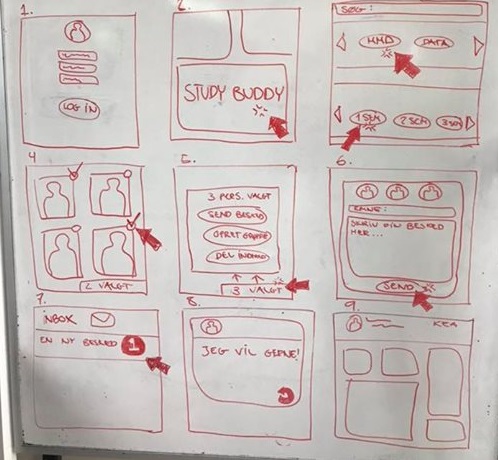 1.
LOG IN
2.
STUDY BUDDY
3.
SØG:
MMD
DATA
1 SEM
2 SEM
3 SEM
4
2 VALGT
5.
3 PERS. VALGT
SEND BESKED
OPRET GRUPPE
DEL INDHOLD
3 VALGT
6.
EMNE:
SKRIV DIN BESKED
HER...
SEND
7.
INBOX
EN NY BESKED 1
8.
JEG VIL GERNE!
9.
KEA